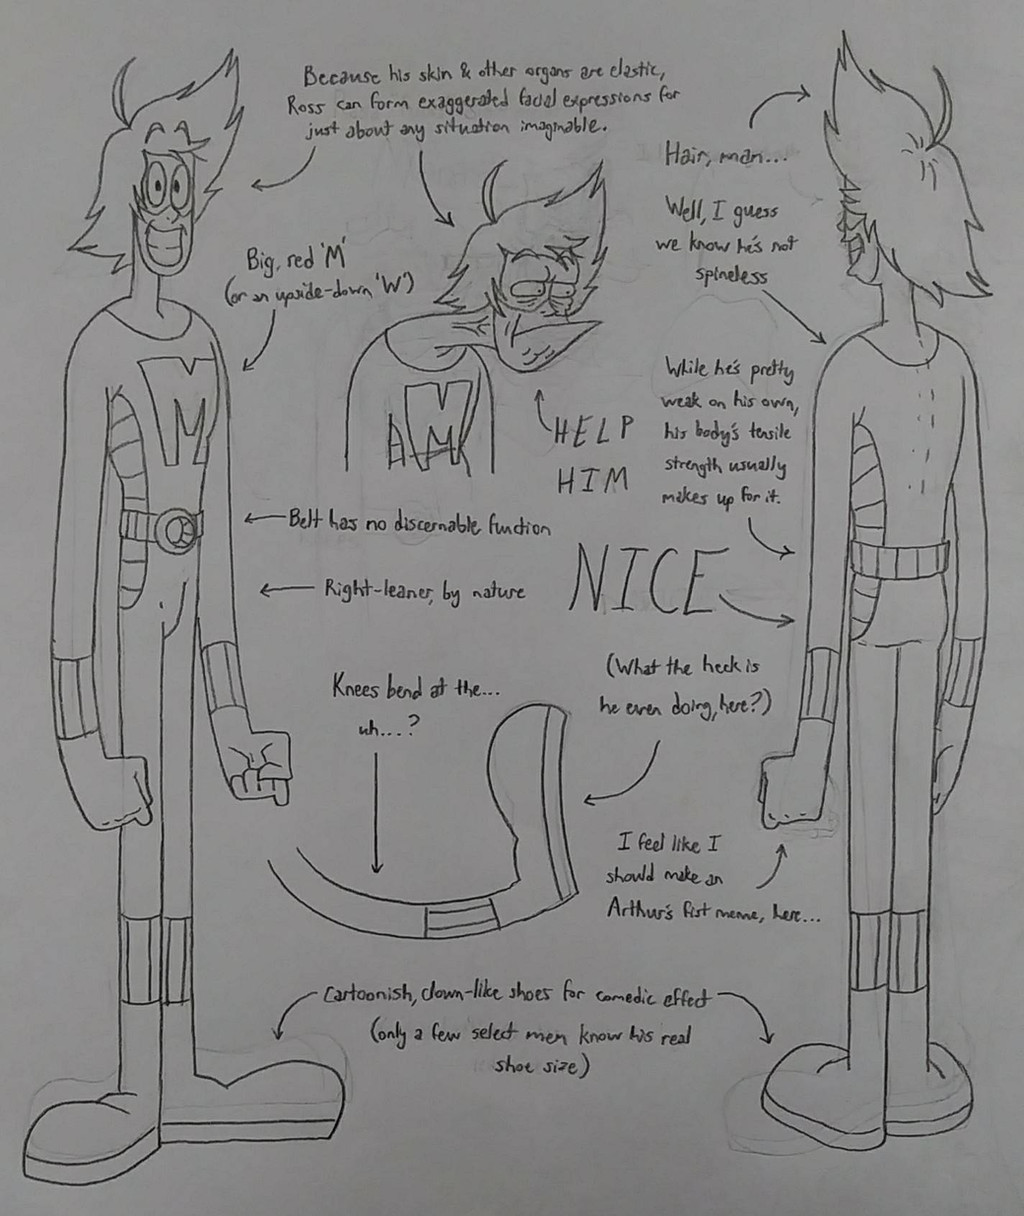 Because his skin & other organs are elastic,
Ross can form exaggerated facial expressions for
just about any situation imaginable.
Hair, man...
Well, I guess
we know he's not
spineless
Big, red 'M'
(or an upside-down 'W')
M
M
While he's pretty
weak on his own,
his body's tensile
strength usually
makes up for it.
HELP
HIM
Belt has no discernable function
NICE
Right-leaner, by nature
(What the heck is
he even doing, here?)
Knees bend at the...
uh...?
I feel like I
should make an
Arthur's fist meme, here...
Cartoonish, clown-like shoes for comedic effect
(only a few select men know his real
shoe size)